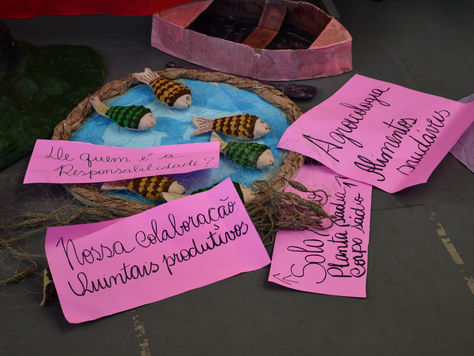 De quem é a
Responsabilidade?
Agroecologia
Alimentos
saudáveis
Nossa Colaboração
Quintais produtivos
Solo
Planta sadia
Corpo sadio